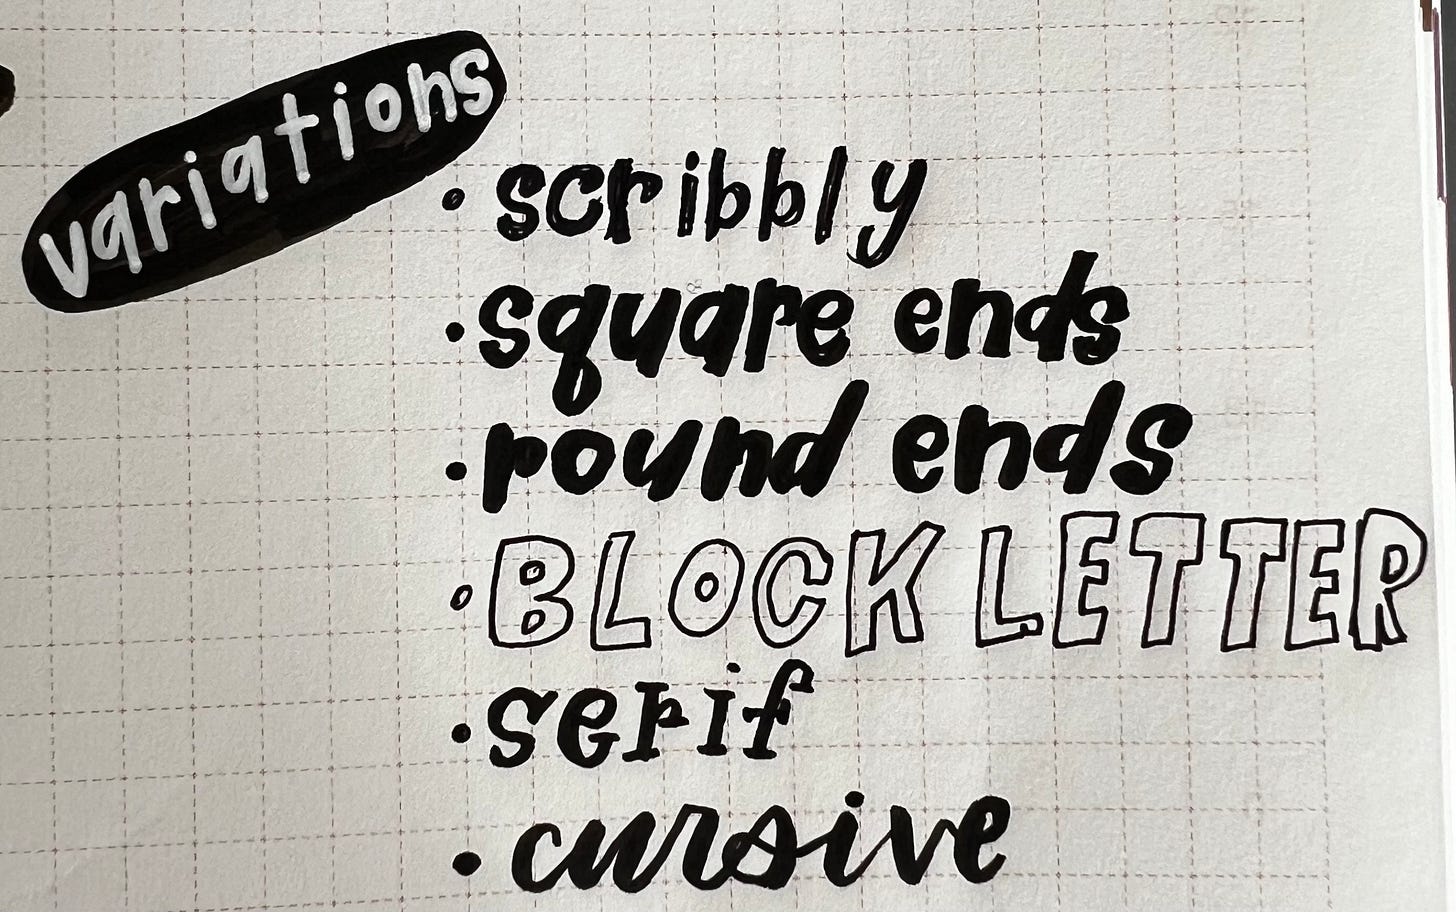 variations
· scribbly
· square ends
· round ends
· BLOCK LETTER
· serif
· cursive